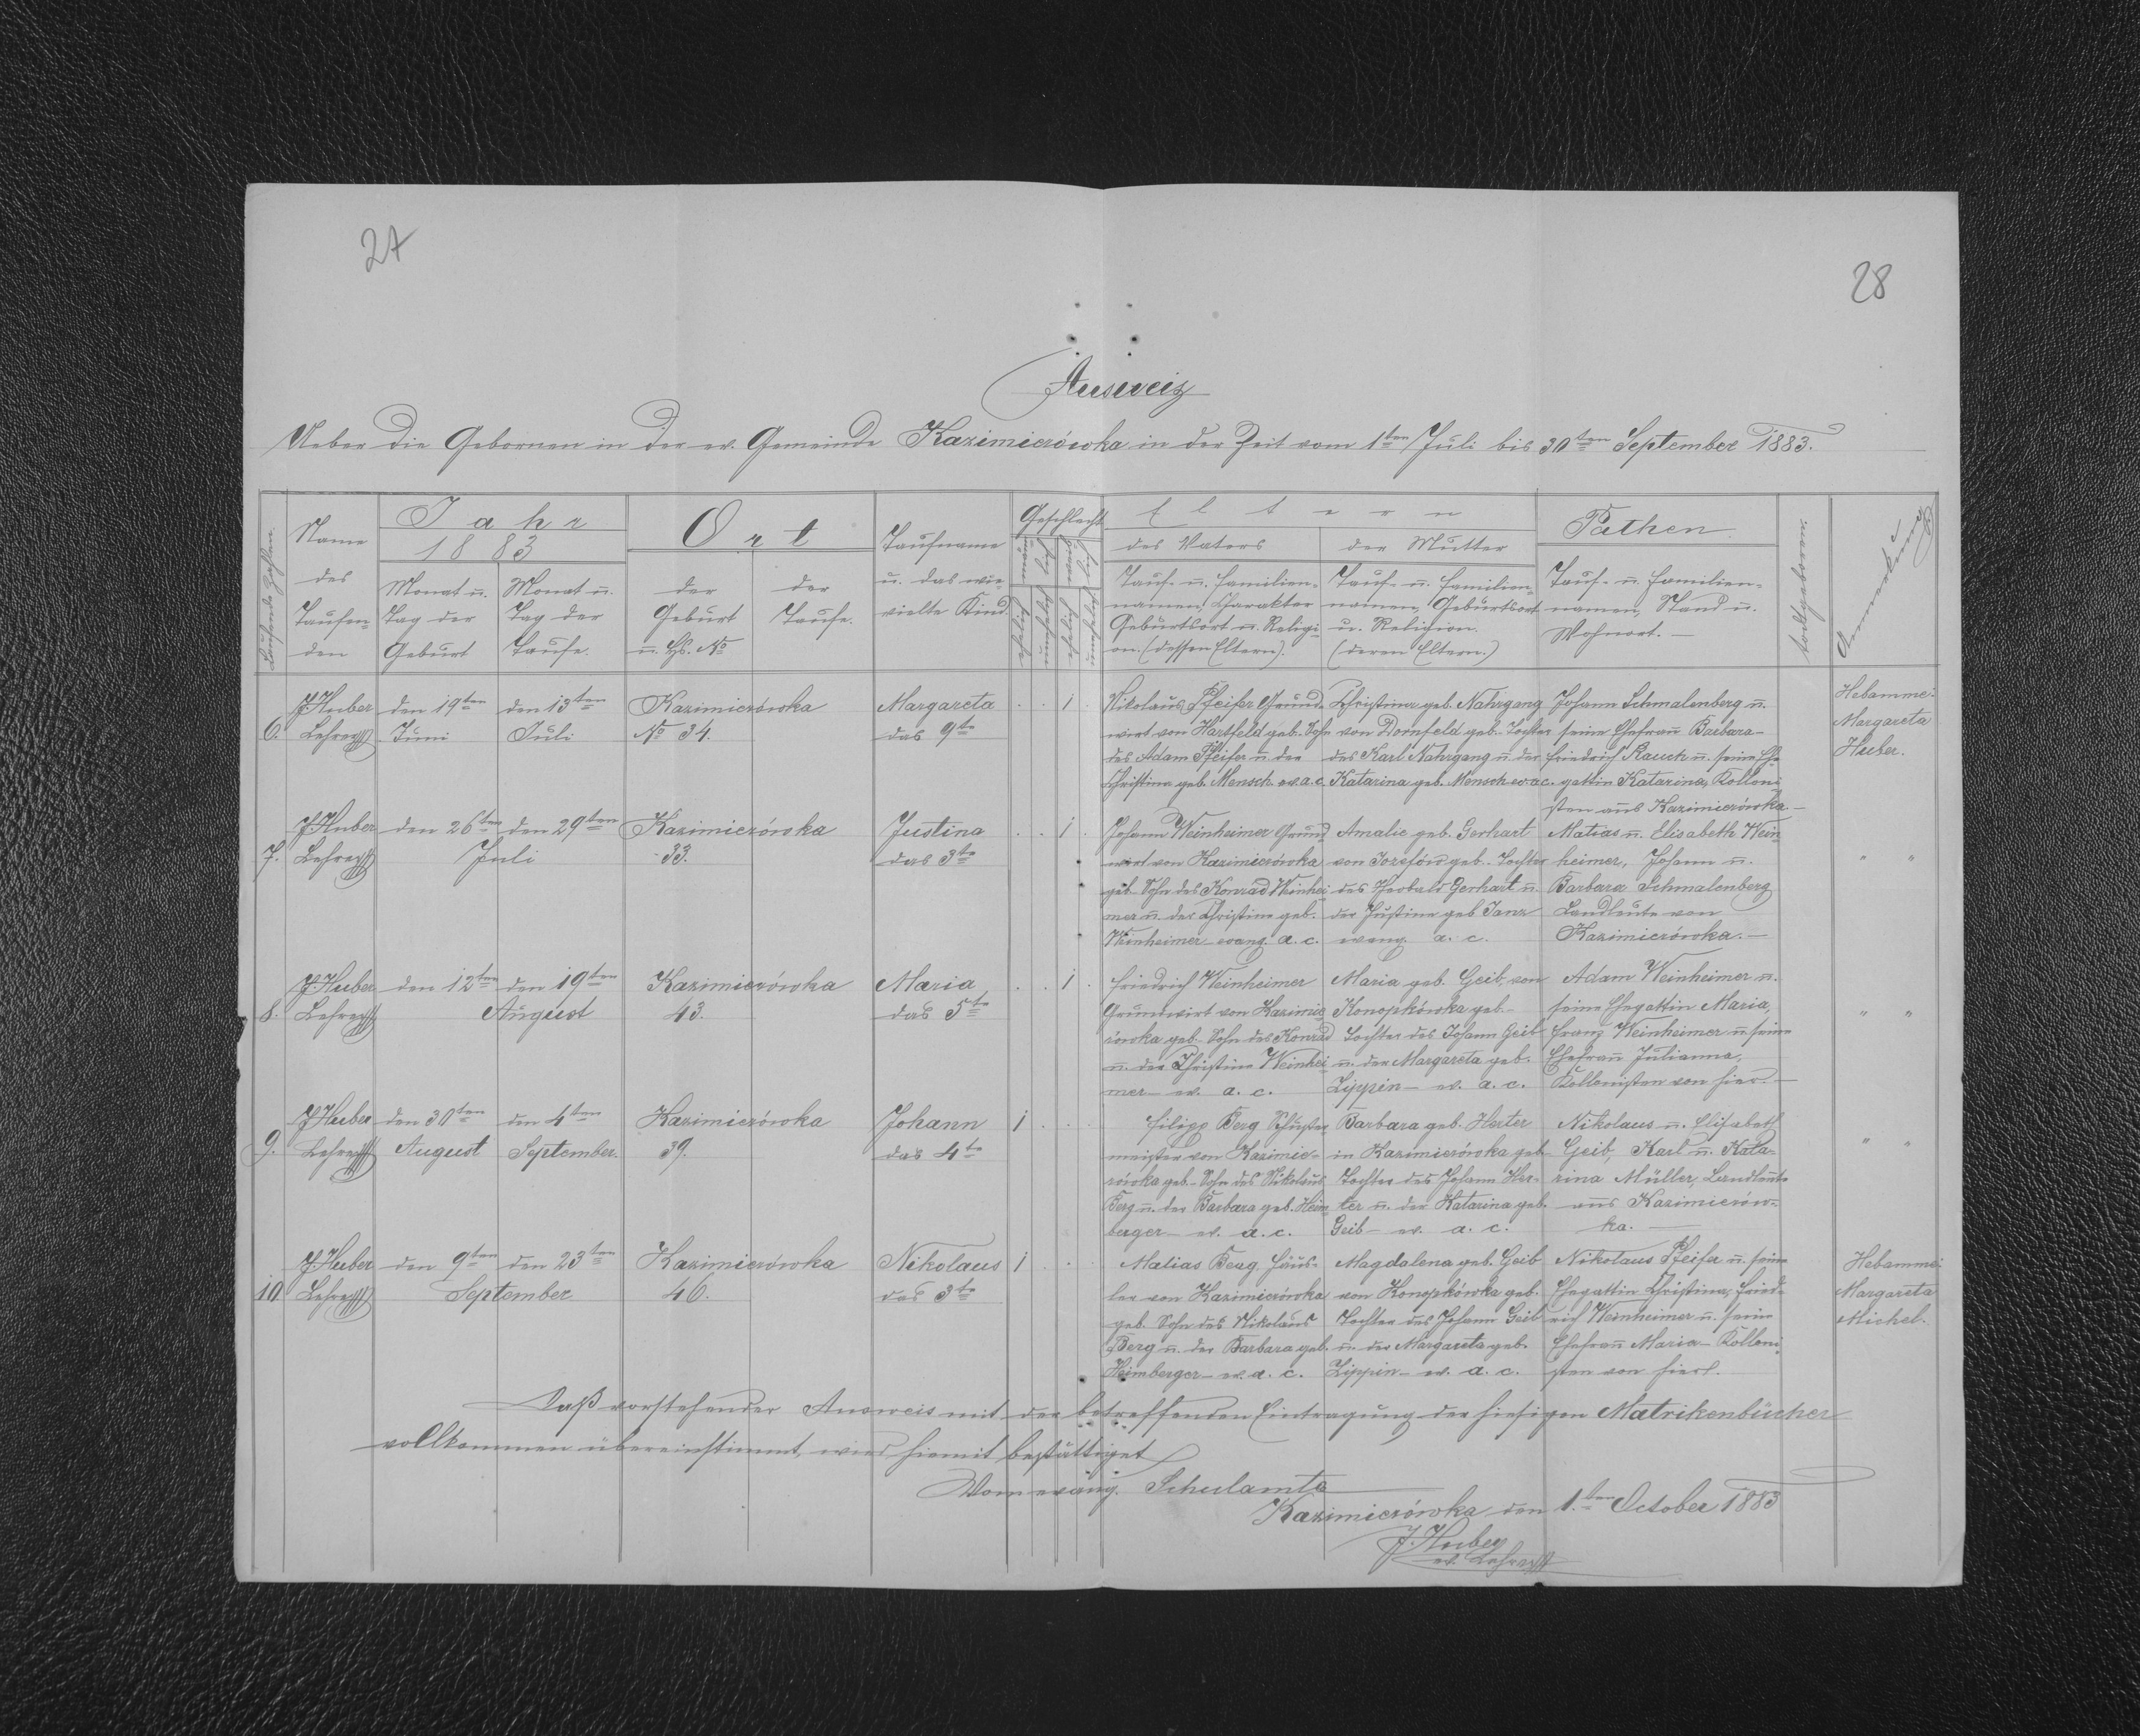 27
28
Ausweis
Ueber die Gebornen in der ev. Gemeinde Kazimierówka in der Zeit vom 1ten Juli bis 30ten September 1883.
Laufende Zahlen
Name
des
Taufen-
den
Jahr
1883
Monat u.
Tag der
Geburt
Monat u.
Tag der
Taufe.
Ort
der
Geburt
u. Hs. No
der
Taufe.
Taufname
u. das wie-
vielte Kind
Geschlecht
Eltern
des Vaters
Tauf- u. Familien-
namen, Charakter
Geburtsort u. Religi-
on. (dessen Eltern).
der Mutter
Tauf- u. Familien-
namen, Geburtsort
u. Religion.
(deren Eltern.)
Pathen.
Tauf- u. Familien-
namen, Stand u.
Wohnort. —
todtgeboren.
Anmerkung
6.
J Huber
Lehrer
den 19ten
Juni
den 13ten
Juli
Kazimierówka
No 34.
Margareta
das 9te
. . 1 .
Nikolaus Pfeifer Grund-
wirt von Hartfeld geb. Sohn
des Adam Pfeifer u. der
Christina geb. Mensch ev. a. c.
Christina geb. Nahrgang
von Dornfeld geb. Tochter
des Karl Nahrgang u. der
Katarina geb. Mensch ev. a. c.
Johann Schmalenberg u.
seine Ehefrau Barbara -
Friedrich Rauch u. seine Ehe-
gattin Katarina, Kolloni-
sten aus Kazimierówka. —
Hebamme:
Margareta
Huber.
7.
J Huber
Lehrer
den 26ten den 29ten
Juli
Kazimierówka
33.
Justina
das 3te
. . 1 .
Johann Weinheimer Grund-
wirt von Kazimierówka
geb. Sohn des Konrad Weinhei-
mer u. der Christine geb.
Weinheimer evang. a. c.
Amalie geb. Gerhart
von Josefów geb. Tochter
des Theobald Gerhart u.
der Justina geb Janz
evang. a. c.
Matias u. Elisabeth Wein-
heimer, Johann u.
Barbara Schmalenberg
Landleute von
Kazimierówka. —
" "
8.
J. Huber
Lehrer
den 12ten den 19ten
August
Kazimierówka
43.
Maria
das 5te
. . 1 .
Friedrich Weinheimer
Grundwirt von Kazimie-
rówka geb. Sohn des Konrad
u. der Christine Weinhei-
mer - ev. a. c.
Maria geb. Geib, von
Konopkówka geb. -
Tochter des Johann Geib
u. der Margareta geb.
Lippin - ev. a. c.
Adam Weinheimer u.
seine Ehegattin Maria,
Franz Weinheimer u. seine
Ehefrau Julianna,
Kollonisten von hier. —
" "
9.
J Huber
Lehrer
den 30ten
August
den 4ten
September.
Kazimierówka
39.
Johann
das 4te
1 . . .
Filipp Berg Schuster-
meister von Kazimie-
rówka geb. - Sohn des Nikolaus
Berg u. der Barbara geb. Heim-
berger - ev. a. c.
Barbara geb. Herter
in Kazimierówka geb.
Tochter des Johann Her-
ter u. der Katarina geb.
Geib - ev. a. c.
Nikolaus u. Elisabeth
Geib, Karl u. Kata-
rina Müller, Landleute
aus Kazimierów-
ka. —
" "
10
J. Huber
Lehrer
den 9ten den 23ten
September
Kazimierówka
46.
Nikolaus
das 3te
1 . . .
Matias Berg Häus-
ler von Kazimierówka
geb. Sohn des Nikolaus
Berg u. der Barbara geb.
Heimberger - ev. a. c.
Magdalena geb. Geib
von Konopkówka geb.
Tochter des Johann Geib
u. der Margareta geb.
Lippin - ev. a. c.
Nikolaus Pfeifer u. seine
Ehegattin Christina, Fried-
rich Weinheimer u. seine
Ehefrau Maria - Kolloni-
sten von hier.
Hebamme:
Margareta
Michel.
Daß vorstehender Ausweis mit der betreffenden Eintragung der hiesigen Matrikenbücher
vollkommen übereinstimmt, wird hiemit bestättiget
Vom evang. Schulamte
Kazimierówka den 1.ten October 1883
J. Huber
ev. Lehrer